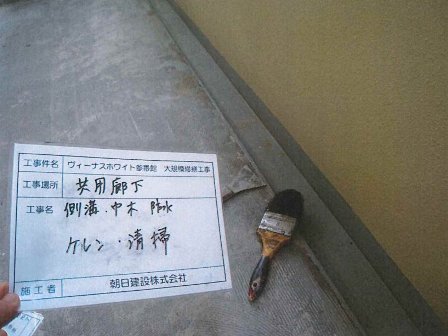 工事件名 ヴィーナスホワイト参番館 大規模修繕工事
工事場所 共用廊下
工事名 側溝・巾木 防水
ケレン・清掃
施工者 朝日建設株式会社